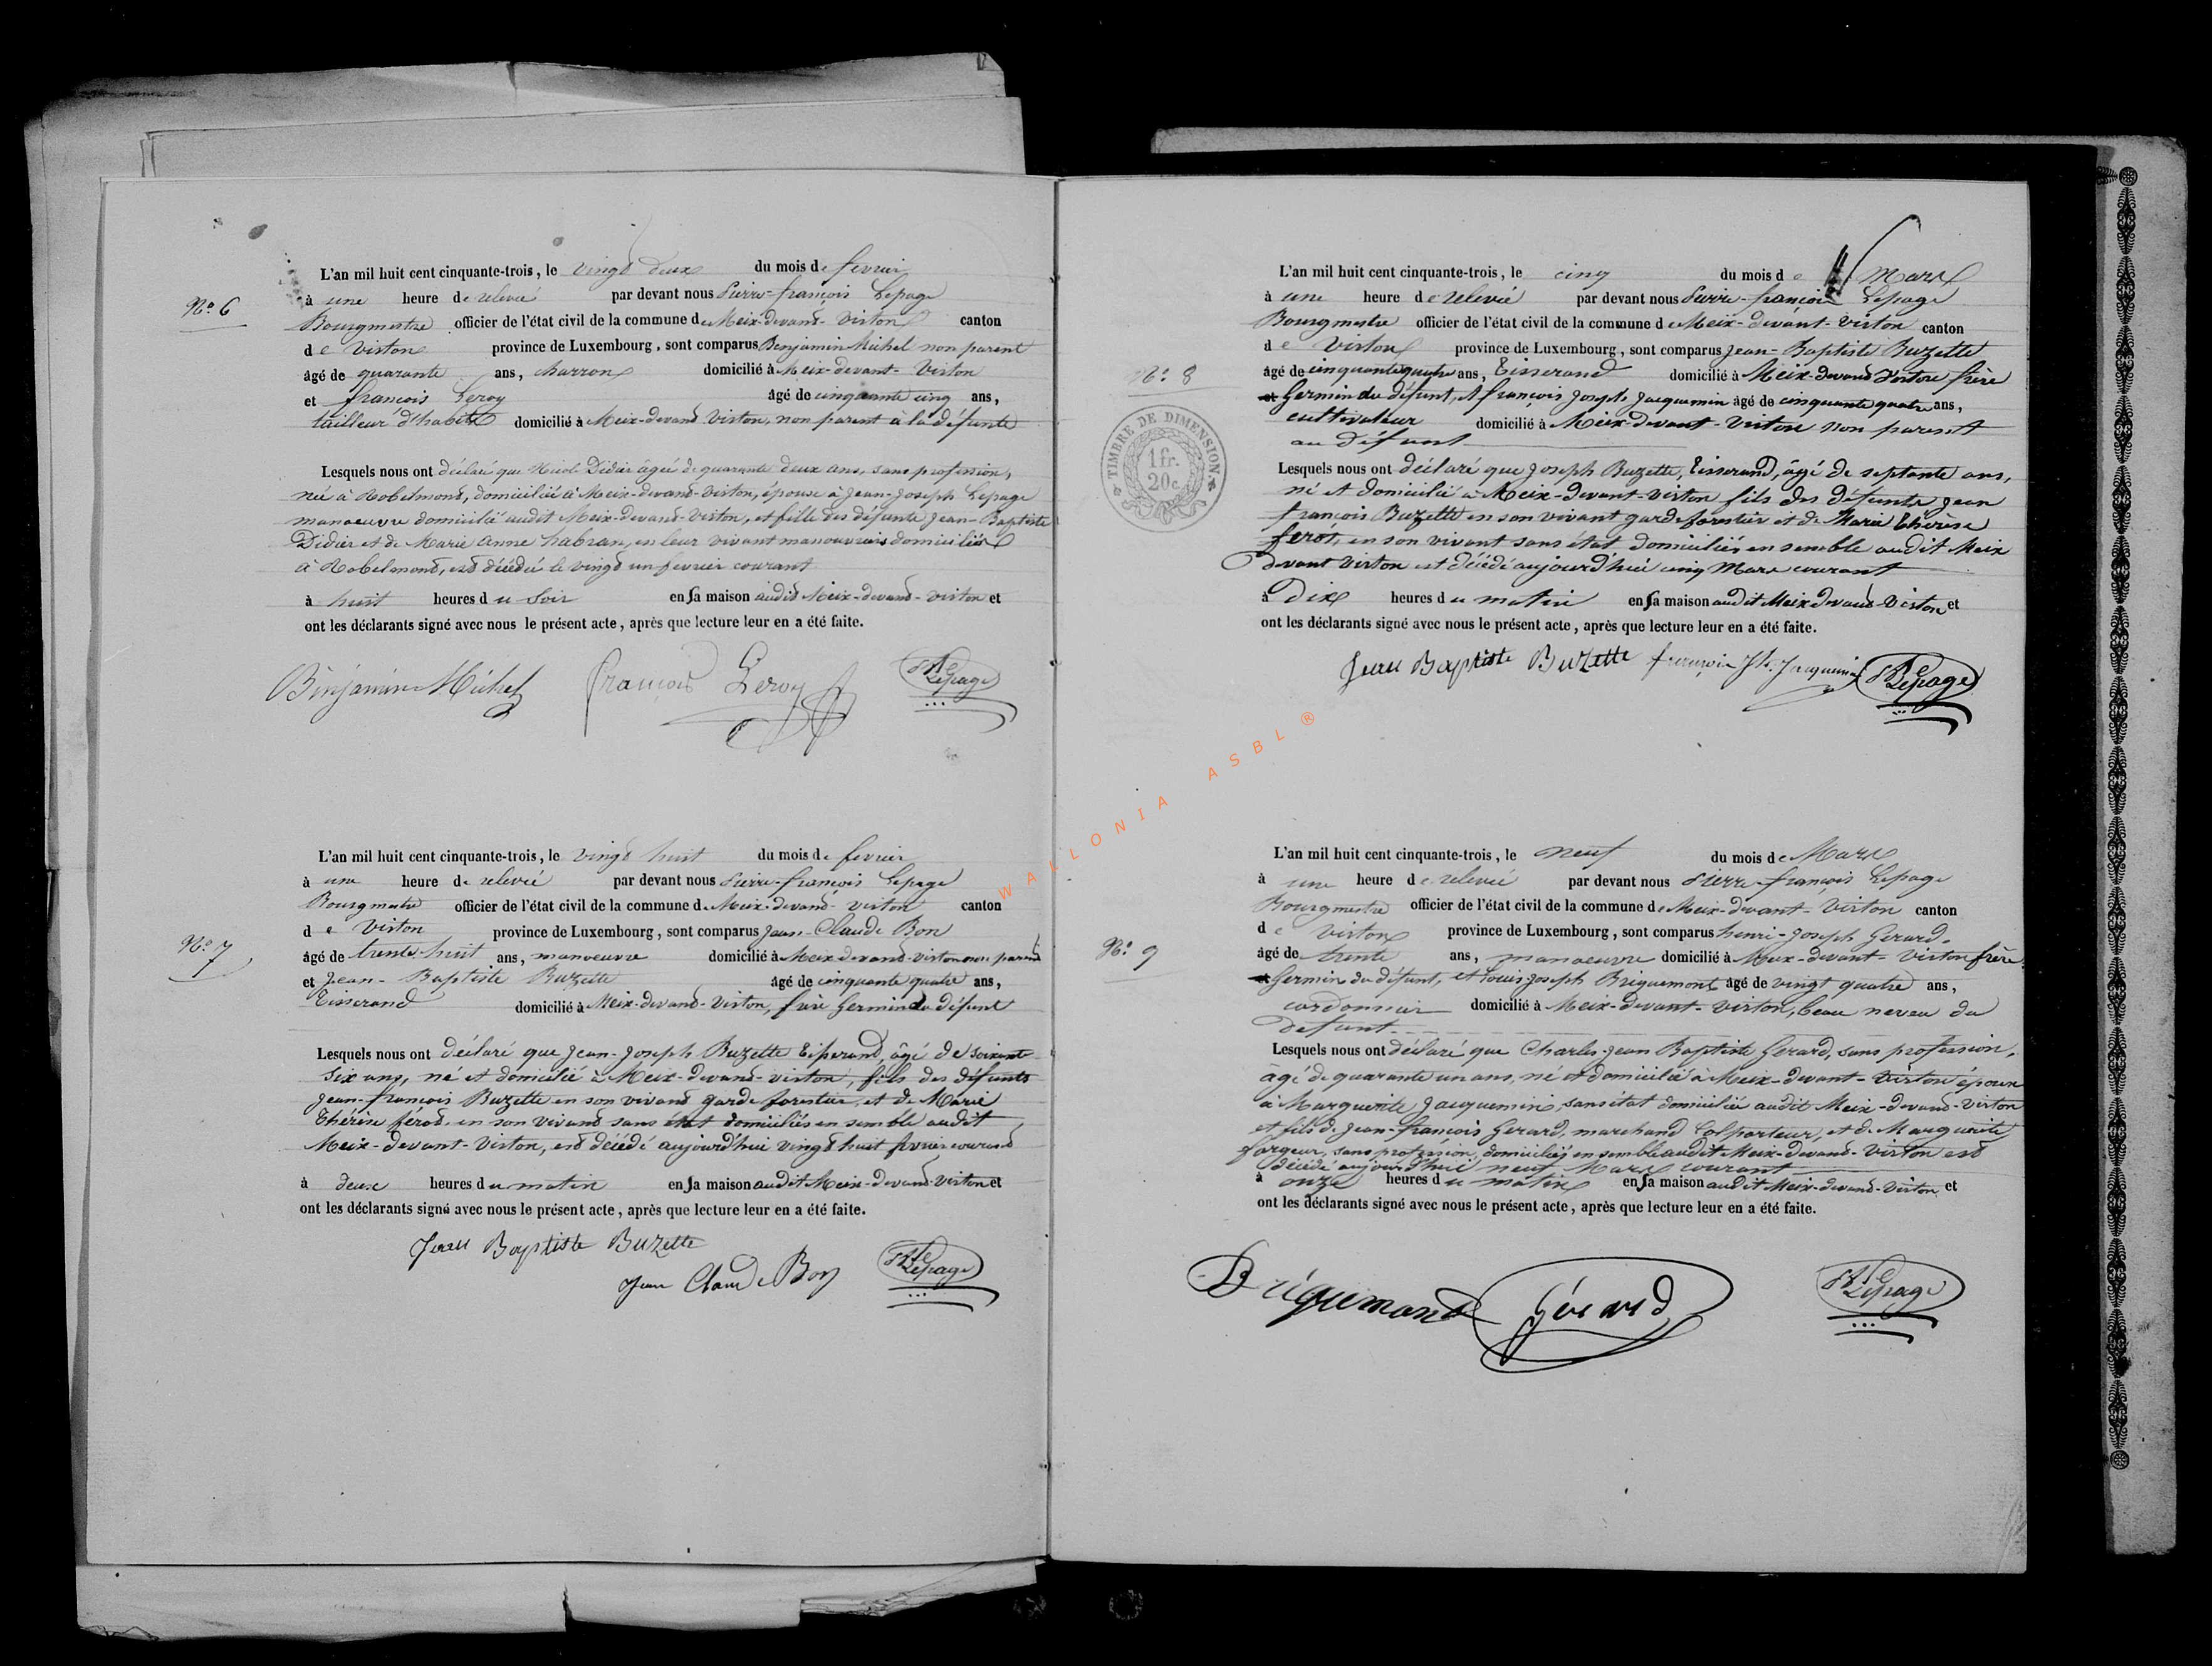 N.o 6
L'an mil huit cent cinquante-trois, le vingt deux du mois de fevrier
à une heure de relevée par devant nous Pierre-françois Lepage
Bourgmestre officier de l'état civil de la commune de Meix-devant-Virton canton
de Virton province de Luxembourg, sont comparus Benjamin Michel non parent
âgé de quarante ans, charron domicilié à Meix-devant-Virton
et françois Leroy âgé de cinquante cinq ans,
tailleur d'habits domicilié à Meix-devant Virton, non parent à la défunte
Lesquels nous ont déclaré que Nicole Didier âgée de quarante deux ans, sans profession,
née à Robelmont, domiciliée à Meix-devant-Virton, épouse à Jean-Joseph Lepage
manoeuvre domicilié audit Meix-devant-Virton, et fille des défunts Jean-Baptiste
Didier et de Marie Anne habran, en leur vivant manouvriers domiciliés
à Robelmont, est décédée le vingt un fevrier courant
à huit heures du soir en sa maison audit Meix-devant-Virton et
ont les déclarants signé avec nous le présent acte, après que lecture leur en a été faite.
Benjamin Michel françois Leroy Lepage
N.o 7
L'an mil huit cent cinquante-trois, le vingt huit du mois de fevrier
à une heure de relevée par devant nous Pierre-françois Lepage
Bourgmestre officier de l'état civil de la commune de Meix-devant-Virton canton
de Virton province de Luxembourg, sont comparus Jean-Claude Bon
âgé de trente-huit ans, manoeuvre domicilié à Meix devant-Virton non parent
et Jean-Baptiste Buzette âgé de cinquante quatre ans,
Tisserand domicilié à Meix-devant-Virton, frère Germin du défunt
Lesquels nous ont déclaré que Jean-Joseph Buzette Tisserand, âgé de soixante
six ans, né et domicilié à Meix-devant-Virton, fils des défunts
Jean-françois Buzette en son vivant garde forestier, et de Marie
Thérèse férot en son vivant sans état domiciliés ensemble audit
Meix-devant-Virton, est décédé aujourd'hui vingt huit fevrier courant
à deux heures du matin en sa maison audit Meix-devant-Virton et
ont les déclarants signé avec nous le présent acte, après que lecture leur en a été faite.
Jean Baptiste Buzette
Jean Claude Bon Lepage
N.o 8
TIMBRE DE DIMENSION
1 fr.
20 c.
L'an mil huit cent cinquante-trois, le cinq du mois de Mars
à une heure de relevée par devant nous Pierre-françois Lepage
Bourgmestre officier de l'état civil de la commune de Meix-devant-Virton canton
de Virton province de Luxembourg, sont comparus Jean-Baptiste Buzette
âgé de cinquante quatre ans, Tisserand domicilié à Meix-devant Virton frère
Germin du défunt, et françois Joseph Jacquemin âgé de cinquante quatre ans,
cultivateur domicilié à Meix-devant-Virton non parent
au défunt
Lesquels nous ont déclaré que Joseph Buzette, Tisserand, âgé de septante ans,
né et domicilié à Meix-devant-Virton fils des défunts Jean
françois Buzette en son vivant garde forestier et de Marie Thérèse
férot, en son vivant sans état domiciliés ensemble audit Meix
devant Virton est décédé aujourd'hui cinq Mars courant
à Dix heures du matin en sa maison audit Meix devant-Virton et
ont les déclarants signé avec nous le présent acte, après que lecture leur en a été faite.
Jean Baptiste Buzette françois Jh. Jacquemin Lepage
N.o 9
L'an mil huit cent cinquante-trois, le neuf du mois de Mars
à une heure de relevée par devant nous Pierre-françois Lepage
Bourgmestre officier de l'état civil de la commune de Meix-devant-Virton canton
de Virton province de Luxembourg, sont comparus henri-Joseph Gerard
âgé de trente ans, manoeuvre domicilié à Meix-devant-Virton frère
Germin du défunt, et Louis Joseph Briquemont âgé de vingt quatre ans,
cordonnier domicilié à Meix-devant-Virton, beau neveu du
defunt
Lesquels nous ont déclaré que Charles-Jean Baptiste Gerard, sans profession,
âgé de quarante un ans, né et domicilié à Meix-devant-Virton époux
à Marguerite Jacquemin, sans état domiciliée audit Meix-devant-Virton
et fils de Jean-françois Gerard, marchand Colporteur, et de Marguerite
forgeur, sans profession, domiciliés ensemble audit Meix-devant-Virton est
décédé aujourd'hui neuf Mars courant
à onze heures du matin en sa maison audit Meix-devant-Virton et
ont les déclarants signé avec nous le présent acte, après que lecture leur en a été faite.
Briquemont Gérard Lepage
WALLONIA ASBL ®